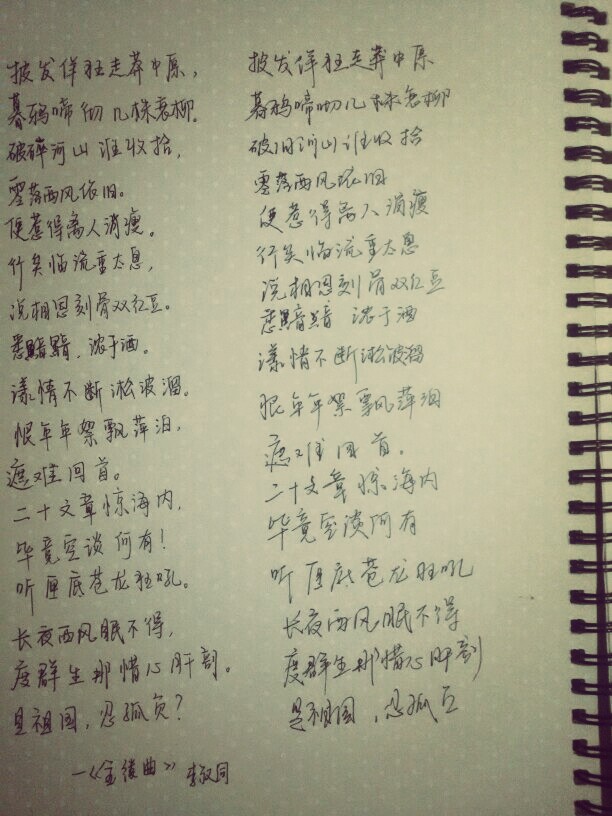 披发佯狂走莽中原，
暮鸦啼彻几株衰柳。
破碎河山谁收拾，
零落西风依旧。
便惹得离人消瘦。
行矣临流重太息，
说相思刻骨双红豆。
愁黯黯，浓于酒。
漾情不断淞波溜。
恨年年絮飘萍泊，
遮难回首。
二十文章惊海内，
毕竟空谈何有！
听匣底苍龙狂吼。
长夜西风眠不得，
度群生那惜心肝剖。
是祖国，忍孤负？
—《金缕曲》 李叔同
披发佯狂走莽中原
暮鸦啼彻几株衰柳
破旧河山谁收拾
零落西风依旧
便惹得离人消瘦
行矣临流重太息
说相思刻骨双红豆
愁黯黯 浓于酒
漾情不断淞波溜
恨年年絮飘萍泊
遮难回首。
二十文章惊海内
毕竟空谈何有
听匣底苍龙狂吼
长夜西风眠不得
度群生那惜心肝剖
是祖国，忍孤负